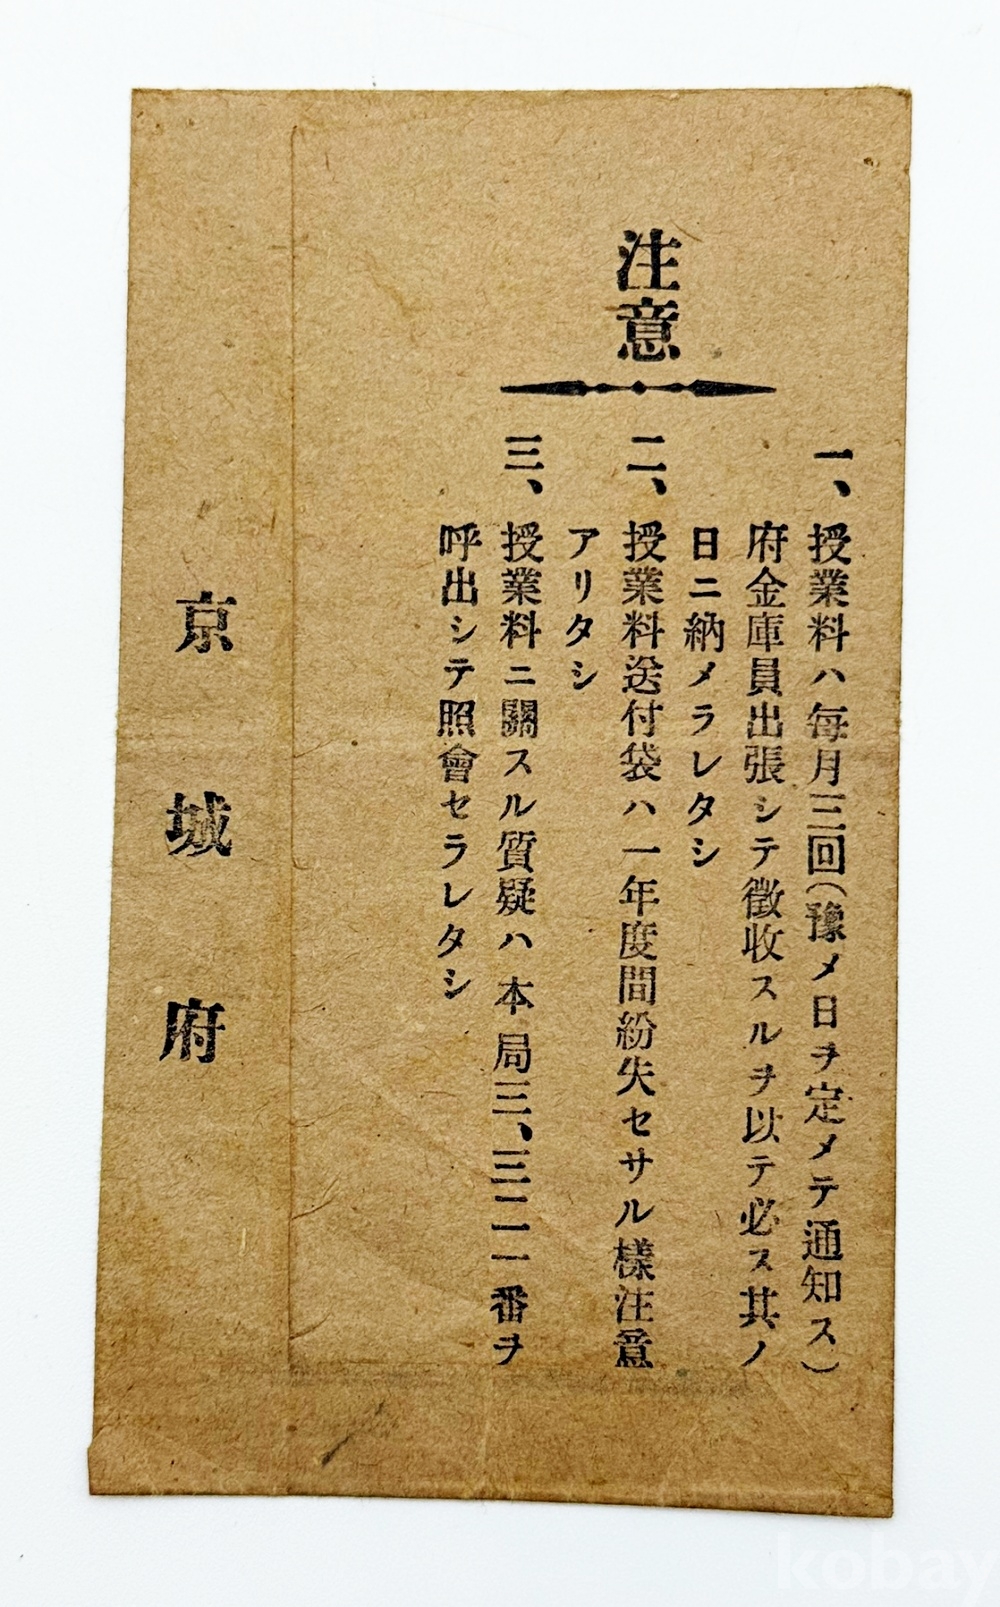 注意
一、授業料ハ每月三回(豫メ日ヲ定メテ通知ス)
府金庫員出張シテ徵收スルヲ以テ必ス其ノ
日ニ納メラレタシ
二、授業料送付袋ハ一年度間紛失セサル樣注意
アリタシ
三、授業料ニ關スル質疑ハ本局三、三二一番ヲ
呼出シテ照會セラレタシ
京城府
kobay